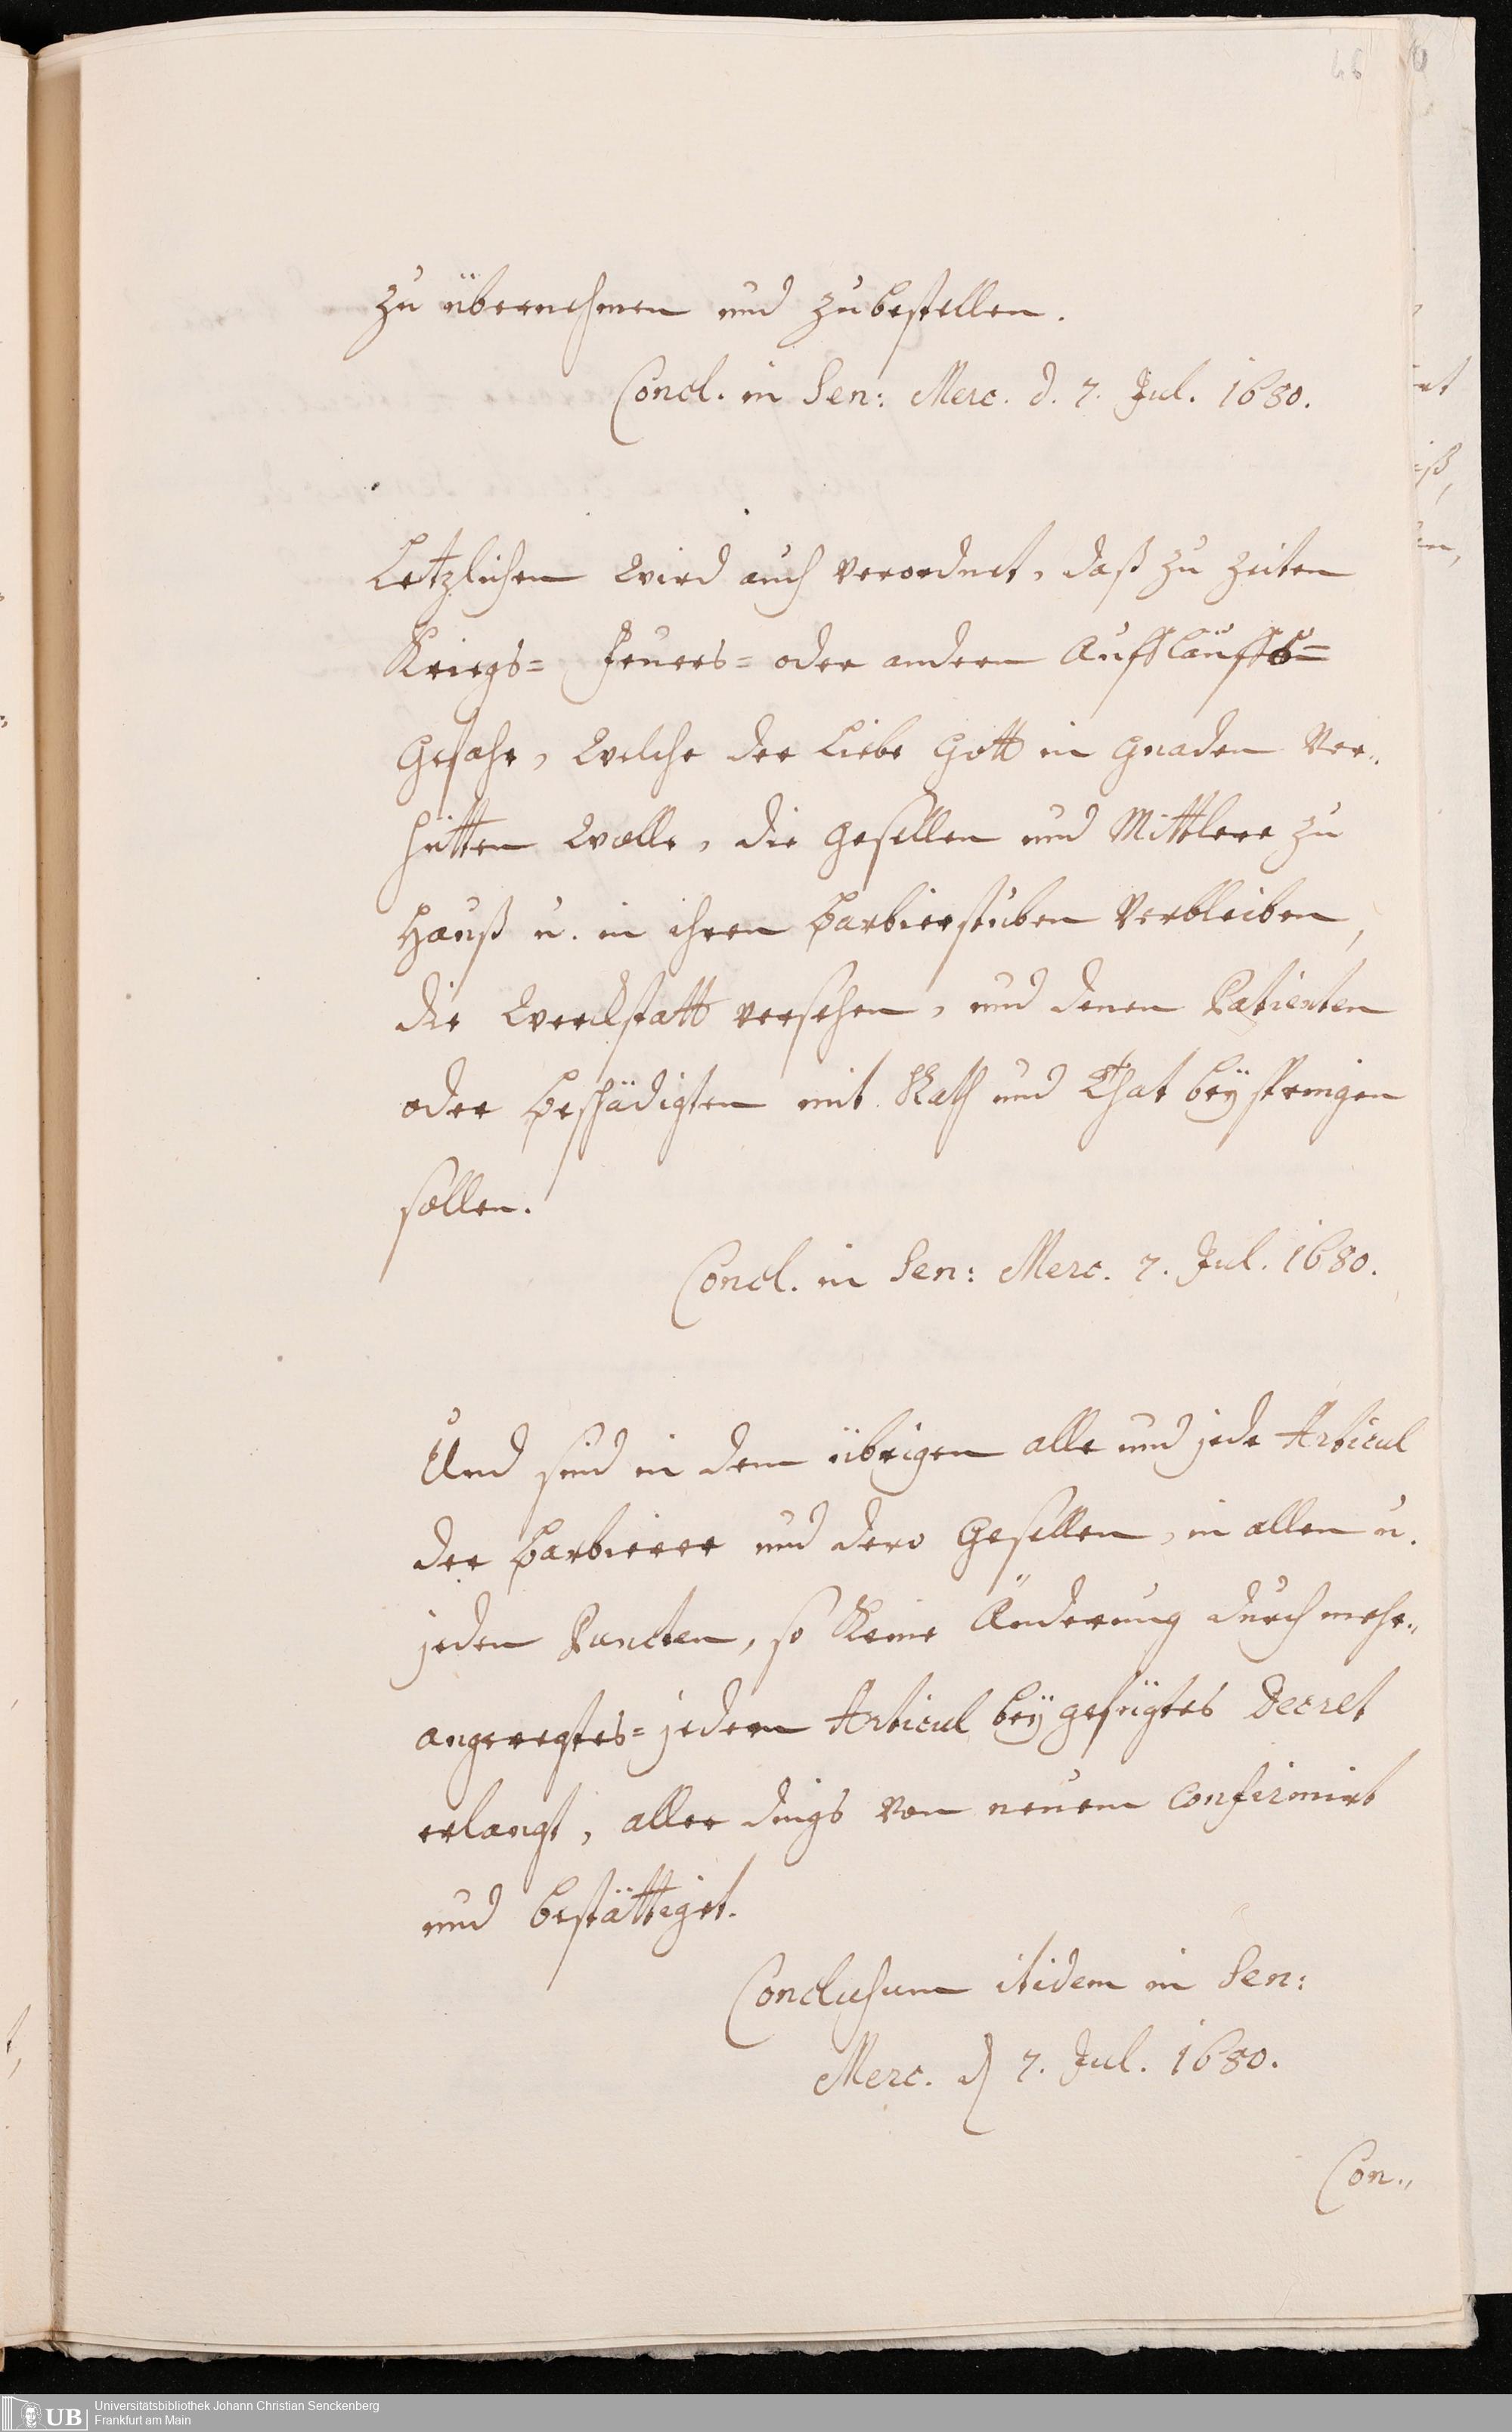 46
zu übernehmen und zubestellen.
Concl. in Sen: Merc. d. 7. Jul. 1680.
Letzlichen wird auch verordnet, daß zu zeiten
Kriegs= Feuers= oder andern Aufflauffs=
Gefahr, welche der Liebe Gott in Gnaden Ver„
hütten wolle, die Gesellen und Mittlere zu
Hauß u. in ihren Barbierstuben Verbleiben,
die Werckstatt versehen, und denen Patienten
oder Beschädigten mit Rath und That beÿspringen
sollen.
Concl. in Sen: Merc. 7. Jul. 1680.
Und sind in dem übrigen alle und jede Articul
der Barbierer und dero Gesellen, in allen u.
jeden Puncten, so keine Änderung durch mehr„
angeregtes= jedem Articul beÿgefügtes Decret
erlangt, aller dings von neuem confirmirt
und bestättiget.
Conclusum itidem in Sen:
Merc. d 7. Jul. 1680.
Con„
UB
Universitätsbibliothek Johann Christian Senckenberg
Frankfurt am Main